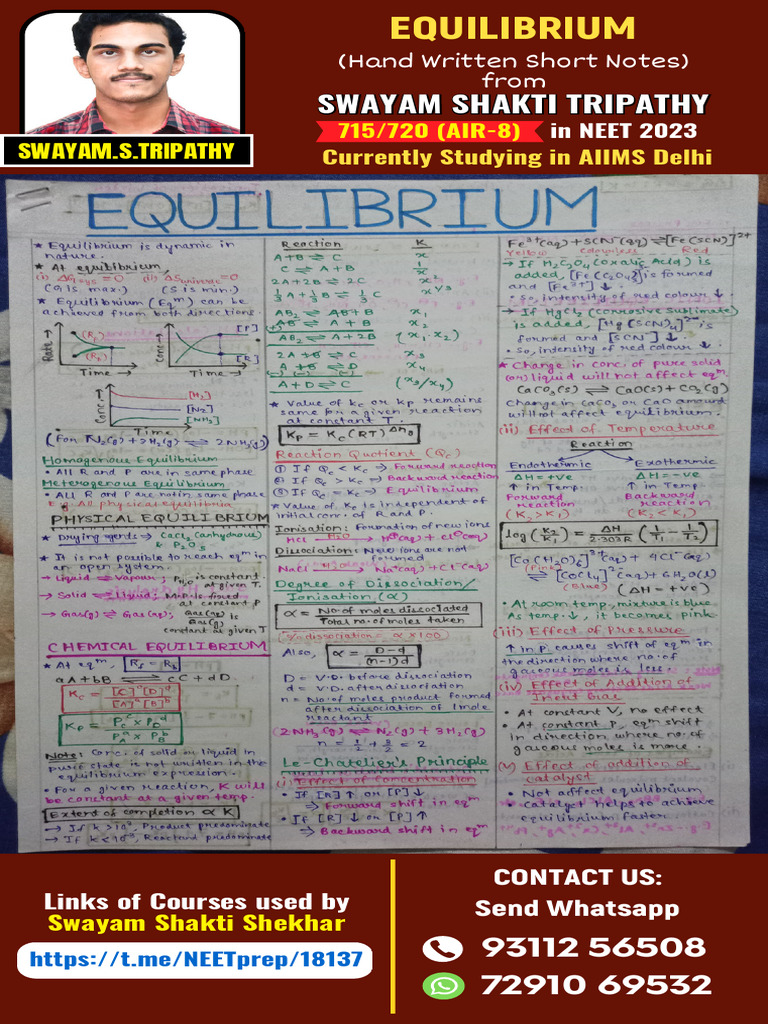 EQUILIBRIUM
(Hand Written Short Notes)
from
SWAYAM SHAKTI TRIPATHY
715/720 (AIR-8) in NEET 2023
Currently Studying in AIIMS Delhi
SWAYAM.S.TRIPATHY
EQUILIBRIUM
★ Equilibrium is dynamic in
nature.
★ At equilibrium,
(G is max.) (S is min.)
★ Equilibrium (Eqᵐ) can be
achieved from both directions.
Rate ↑ (Rf) (Rb) Time →
Conc → [P] [R] Time →
Conc ↑ [H₂] [NN₂] [NH₃] Time →
(For N₂(g) + 2H₂(g) ⇌ 2NH₃(g))
Homogenous Equilibrium
• All R and P are in same phase
Heterogenous Equilibrium
• All R and P are not in same phase
E.g. All physical equilibria
PHYSICAL EQUILIBRIUM
★ Drying agents → CaCl₂ (anhydrous)
& P₂O₅
★ It is not possible to reach eqᵐ in
an open system.
→ Liquid ⇌ Vapour; PH₂O is constant
at given T.
→ Solid ⇌ Liquid; M.P. is fixed
at constant P
→ Gas(g) ⇌ Gas(aq); Gas(aq)/Gas(g) is
constant at given T
CHEMICAL EQUILIBRIUM
★ At eqᵐ, Rf = Rb
aA + bB ⇌ cC + dD
Kc = [C]ᶜ[D]ᵈ / [A]ᵃ[B]ᵇ
Kp = Pcᶜ × PDᵈ / PAᵃ × PBᵇ
Note: Conc. of solid or liquid in
pure state is not written in the
equilibrium expression.
• For a given reaction, K will
be constant at a given temp.
Extent of completion ∝ K
→ If K > 10³, Product predominate
→ If K < 10⁻³, Reactant predominate
Reaction K
A + B ⇌ C x
C ⇌ A + B 1/x
2A + 2B ⇌ 2C x²
1/3 A + 1/3 B ⇌ 1/3 C x^1/3
AB₂ ⇌ AB + B x₁
AB ⇌ A + B x₂
AB₂ ⇌ A + 2B (x₁·x₂)
2A + B ⇌ C x₃
A + B ⇌ D x₄
A + D ⇌ C (x₃/x₄)
★ Value of Kc or Kp remains
same for a given reaction
at constant T.
Kp = Kc (RT)^Δng
Reaction Quotient (Qc)
① If Qc < Kc → Forward reaction
② If Qc > Kc → Backward reaction
③ If Qc = Kc → Equilibrium
★ Value of Kc is independent of
initial conc. of R and P.
Ionisation: Formation of new ions
HCl H₂O→ H⁺(aq) + Cl⁻(aq)
Dissociation: New ions are not
formed
NaCl H₂O→ Na⁺(aq) + Cl⁻(aq)
Degree of Dissociation/
Ionisation (α)
α = No. of moles dissociated / Total no. of moles taken
(% dissociation = α × 100)
Also, α = D-d / (n-1)d
D = V.D. before dissociation
d = V.D. after dissociation
n = No. of moles product formed
after dissociation of 1 mole
reactant
(2NH₃(g) ⇌ N₂(g) + 3H₂(g)
n = 1/2 + 3/2 = 2
Le-Chatelier's Principle
(i) Effect of Concentration
• If [R]↑ or [P]↓
⇒ Forward shift in eqᵐ
• If [R]↓ or [P]↑
⇒ Backward shift in eqᵐ
Fe³⁺(aq) + SCN⁻(aq) ⇌ [Fe(SCN)]²⁺
Yellow Colourless Red
→ If H₂C₂O₄ (Oxalic Acid) is
added, [Fe(C₂O₄)₃] is formed
and [Fe³⁺]↓.
• So, intensity of red colour ↓.
→ If HgCl₂ (Corrosive Sublimate)
is added, [Hg(SCN)₄]²⁻ is
formed and [SCN⁻]↓.
• So, intensity of red colour ↓.
★ Change in conc. of pure solid
(or) liquid will not affect eqᵐ.
CaCO₃(s) ⇌ CaO(s) + CO₂(g)
Change in CaCO₃ or CaO amount
will not affect equilibrium.
(ii) Effect of Temperature
Reaction
Endothermic Exothermic
ΔH = +ve ΔH = -ve
↑ in Temp. ↑ in Temp.
Forward Backward
reaction reaction
(K₂ > K₁) (K₂ < K₁)
log(K₂/K₁) = ΔH/2.303R (1/T₁ - 1/T₂)
[Co(H₂O)₆]²⁺(aq) + 4Cl⁻(aq)
(Pink)
⇌ [CoCl₄]²⁻(aq) + 6H₂O(l)
(Blue) (ΔH = +ve)
• At room temp, mixture is blue
As temp. ↓, it becomes pink
(iii) Effect of Pressure
↑ in P, causes shift of eqᵐ in
the direction where no. of
gaseous moles is less.
(iv) Effect of Addition of
Inert Gas
• At constant V, no effect
• At constant P, eqᵐ shift
in direction where no. of
gaseous moles is more.
(v) Effect of addition of
catalyst
• Not affect equilibrium
• Catalyst helps to achieve
equilibrium faster
Links of Courses used by
Swayam Shakti Shekhar
https://t.me/NEETprep/18137
CONTACT US:
Send Whatsapp
93112 56508
72910 69532